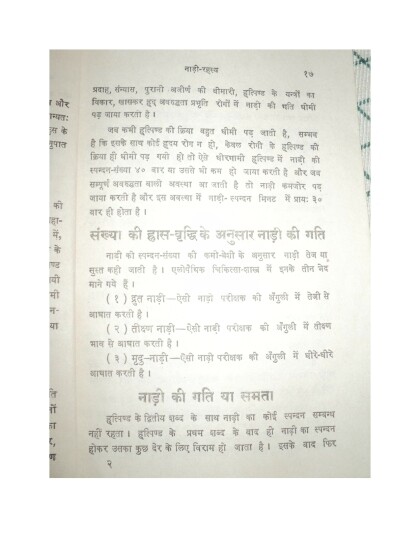 नाड़ी-रहस्य १७
प्रवाह, संन्यास, पुरानी अजीर्ण की बीमारी, हृत्पिण्ड के यन्त्रों का
विकार, खासकर हृद् अवरुद्धता प्रभृति रोगों में नाड़ी की गति धीमी
पड़ जाया करती है ।
जब कभी हृत्पिण्ड की क्रिया बहुत धीमी पड़ जाती है, सम्भव
है कि इसके साथ कोई हृदय रोग न हो, केवल रोगी के हृत्पिण्ड की
क्रिया ही धीमी पड़ गयी हो तो ऐसे धीरगामी हृत्पिण्ड में नाड़ी की
स्पन्दन-संख्या ४० बार या उससे भी कम हो जाया करती है और जब
सम्पूर्ण अवरुद्धता वाली अवस्था आ जाती है तो नाड़ी कमजोर पड़
जाया करती है और इस अवस्था में नाड़ी-स्पन्दन मिनट में प्रायः ३०
बार ही होता है ।
संख्या की ह्रास-वृद्धि के अनुसार नाड़ी की गति
नाड़ी की स्पन्दन-संख्या की कमी-बेशी के अनुसार नाड़ी तेज या
सुस्त कही जाती है । एलोपैथिक चिकित्सा-शास्त्र में इनके तीन भेद
माने गये हैं ।
( १ ) द्रुत नाड़ी—ऐसी नाड़ी परीक्षक को अँगुली में तेजी से
आघात करती है ।
( २ ) तीक्ष्ण नाड़ी—ऐसी नाड़ी परीक्षक की अँगुली में तीक्ष्ण
भाव से आघात करती है ।
( ३ ) मृदु-नाड़ी—ऐसी नाड़ी परीक्षक की अँगुली में धीरे-धीरे
आघात करती है ।
नाड़ी की गति या समता
हृत्पिण्ड के द्वितीय शब्द के साथ नाड़ी का कोई स्पन्दन सम्बन्ध
नहीं रहता । हृत्पिण्ड के प्रथम शब्द के बाद ही नाड़ी का स्पन्दन
होकर उसका कुछ देर के लिए विराम हो जाता है । इसके बाद फिर
२